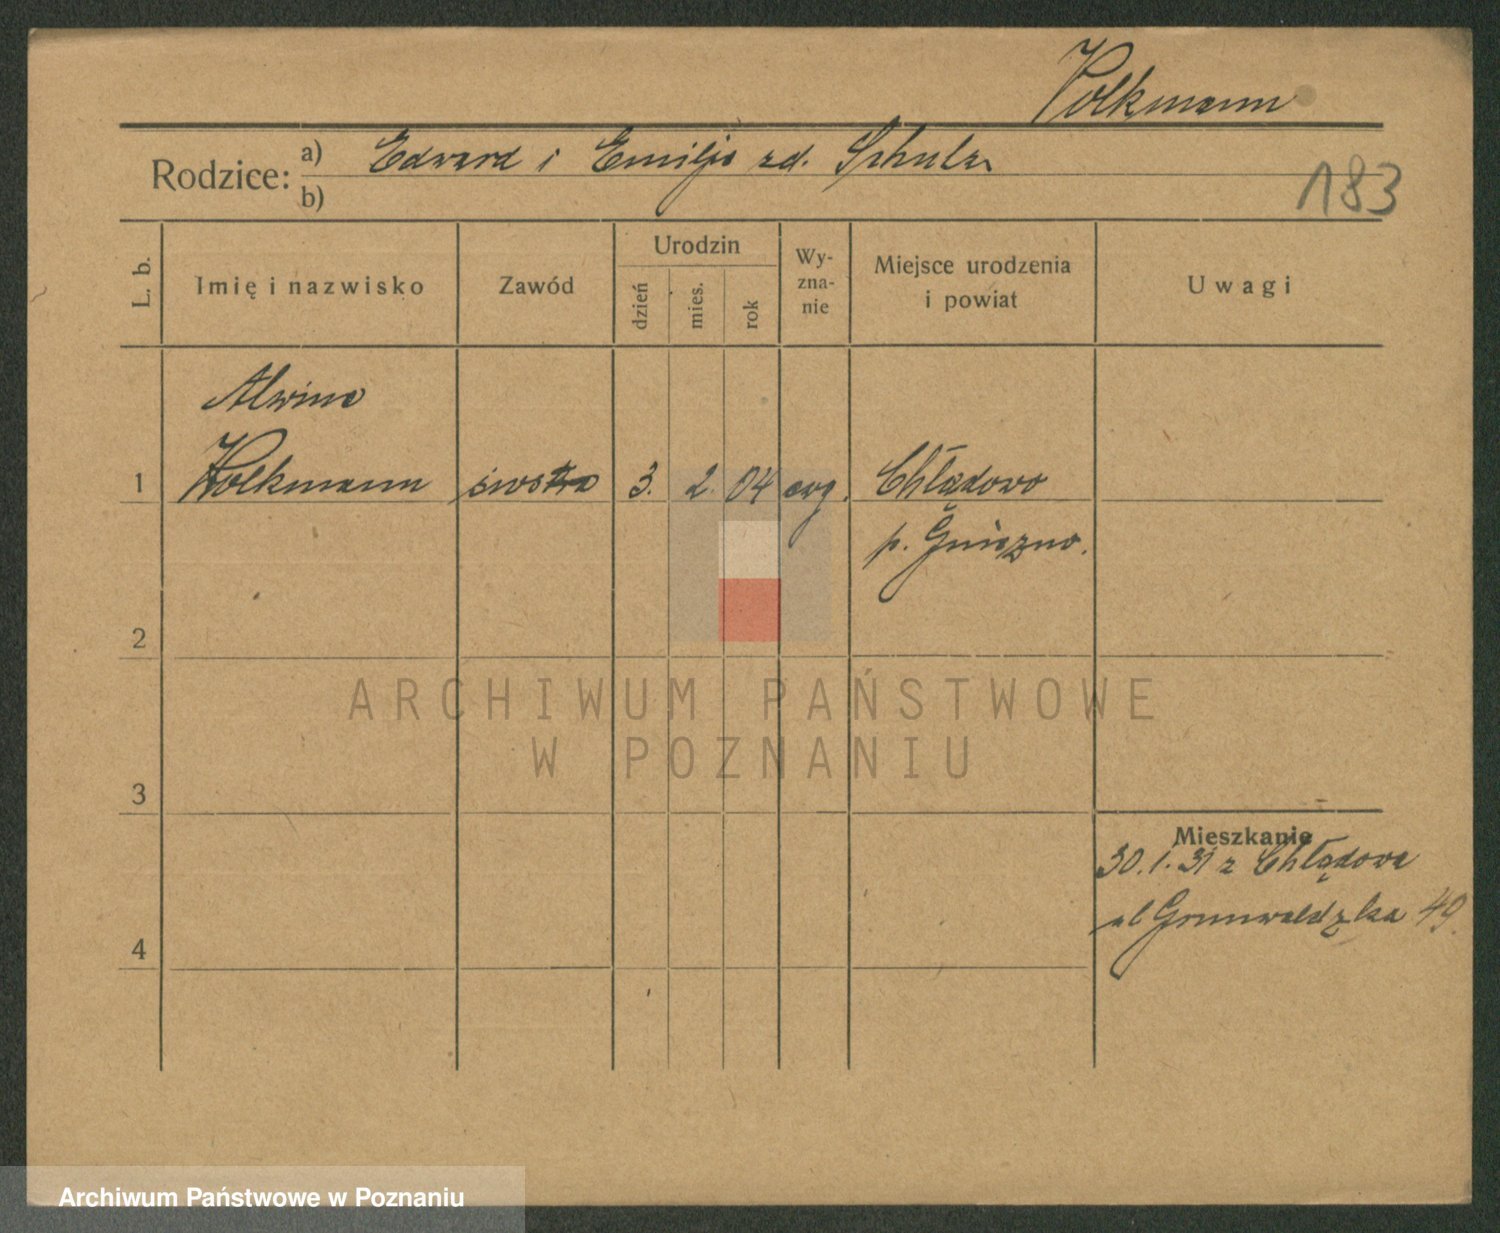 Volkmann
Rodzice: a) Edward i Emilja zd. Schulz
b)
183
L. b.
Imię i nazwisko
Zawód
Urodzin
dzień
mies.
rok
Wy-
zna-
nie
Miejsce urodzenia
i powiat
Uwagi
Alwina
1 Volkmann siostra 3. 2. 04 ewg. Chłądowo
p. Gniezno.
2
ARCHIWUM PAŃSTWOWE
W POZNANIU
3
Mieszkanie
30.1.31 z Chłądowa
ul Grunwaldzka 49.
4
Archiwum Państwowe w Poznaniu